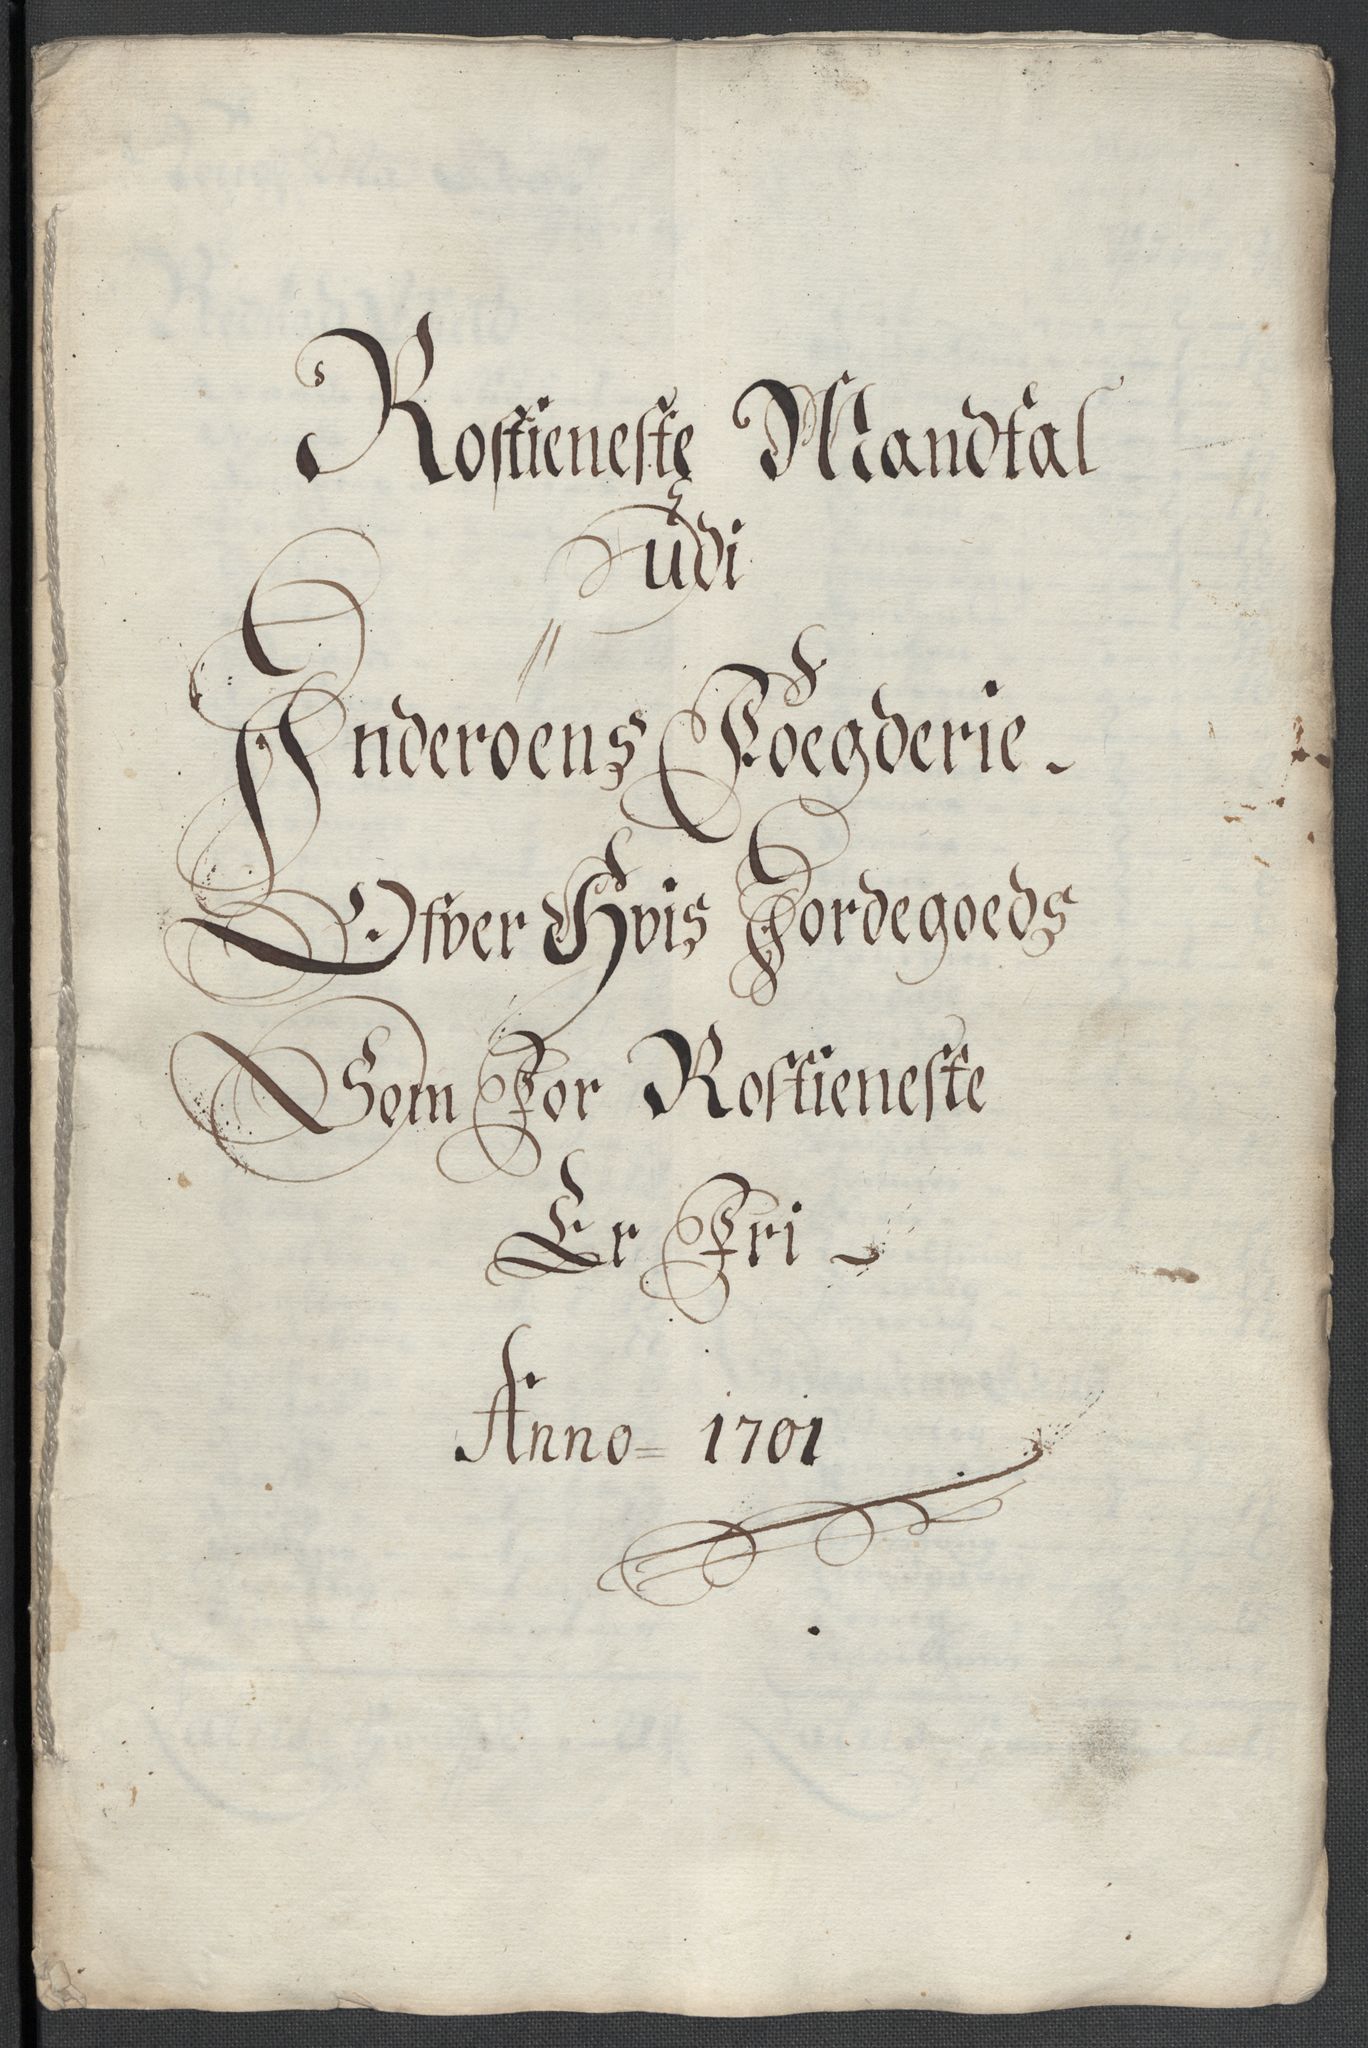 Rostieneste Mandtal
udi
Inderoens Foegderie
Ofver Hvis Jordegoeds
Som For Rostieneste
Er Fri
Anno 1701